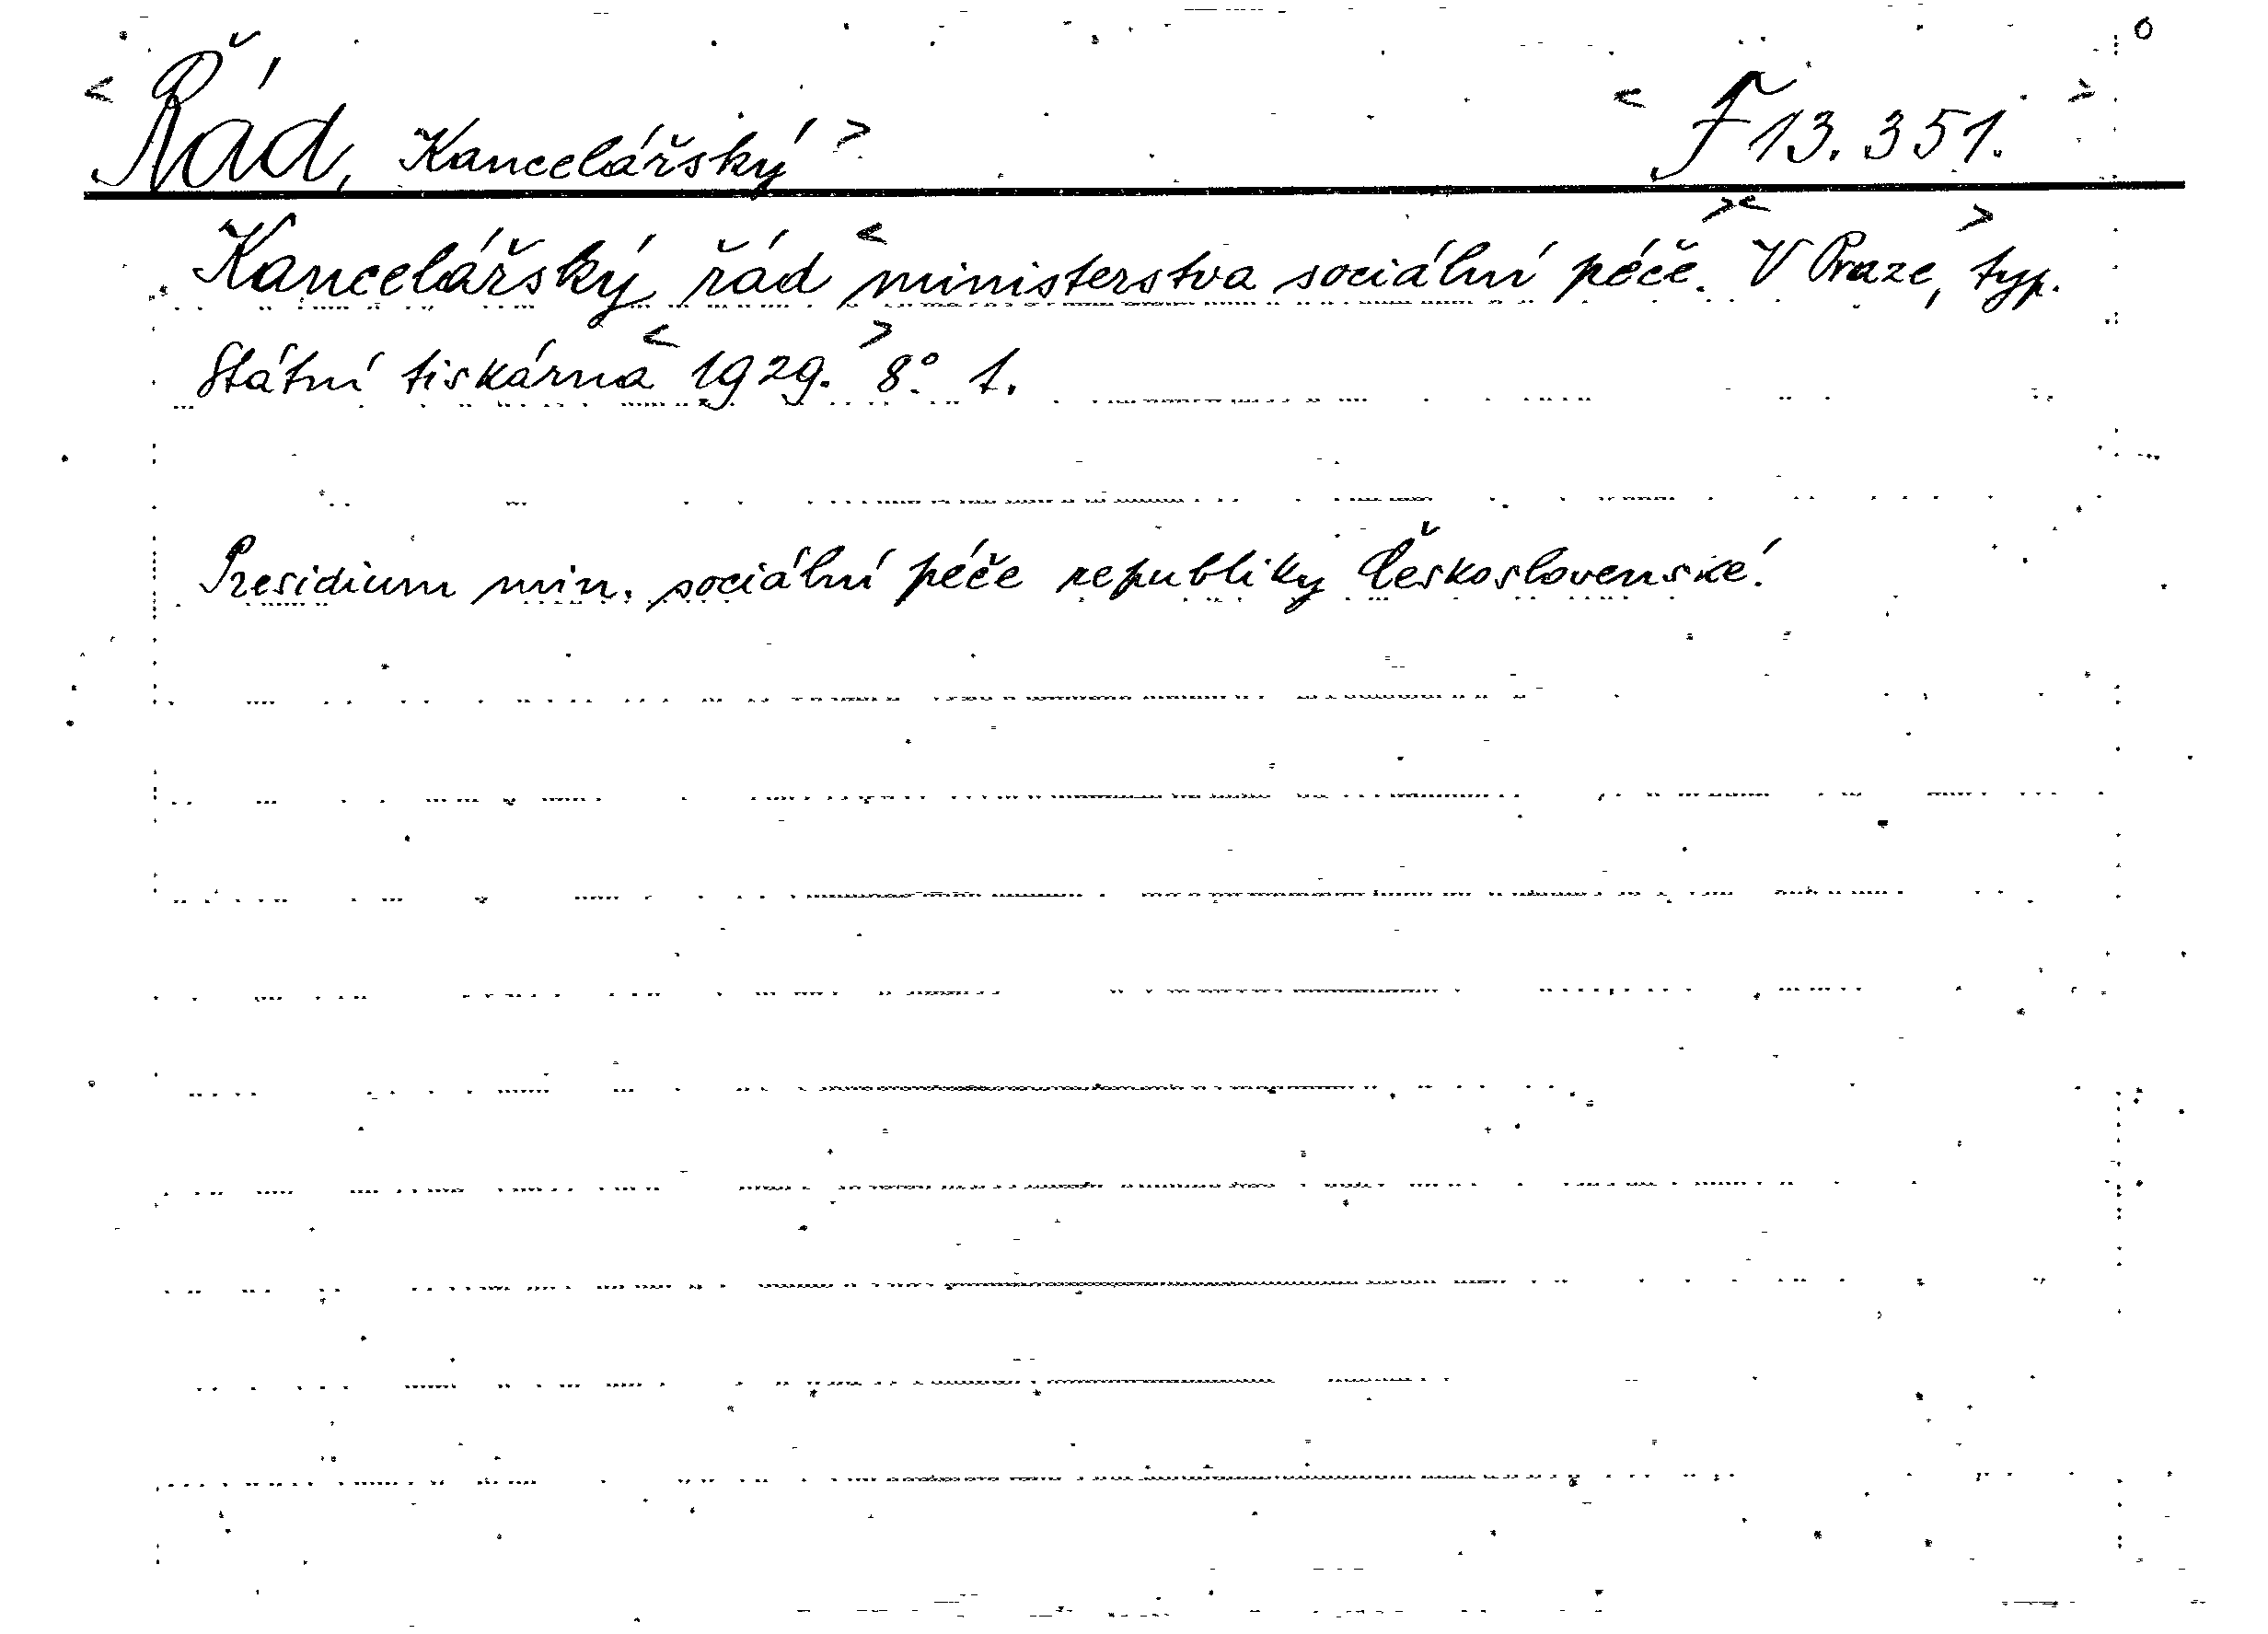 <Řád, Kancelářský> <F 13.351.>
Kancelářský řád <ministerstva sociální péče.> <V Praze,> typ.
Státní tiskárna <1929.> 8°. 1.
Presidium min. sociální péče republiky Československé.